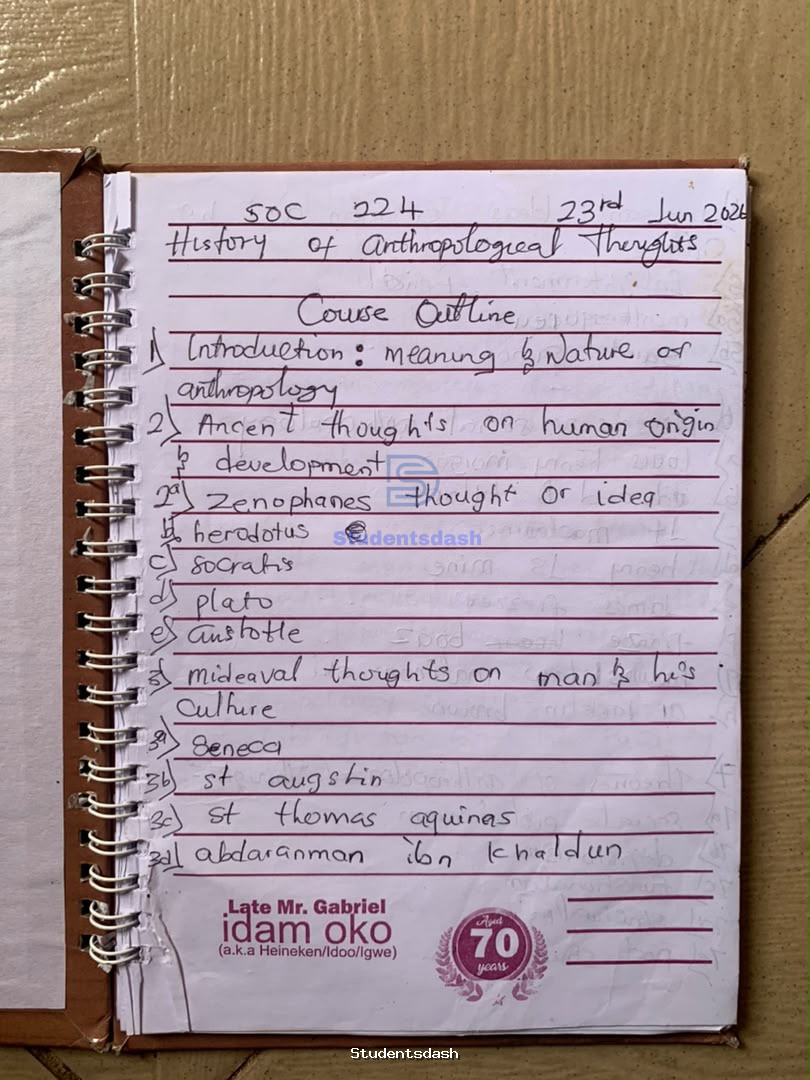 SOC 224 23rd Jun 2026
History of Anthropological Thoughts
Course Outline
1) Introduction: meaning & Nature of
anthropology
2) Ancent thoughts on human origin
& development
2a) Zenophanes thought or idea
b) herodotus
Studentsdash
c) socratis
d) plato
e) aristotle
3) mideaval thoughts on man & his
Culture
3a) Seneca
3b) st augstin
3c) st thomas aquinas
3d) abdaranman ibn khaldun
Late Mr. Gabriel
idam oko
(a.k.a Heineken/Idoo/Igwe)
Aged
70
years
Studentsdash